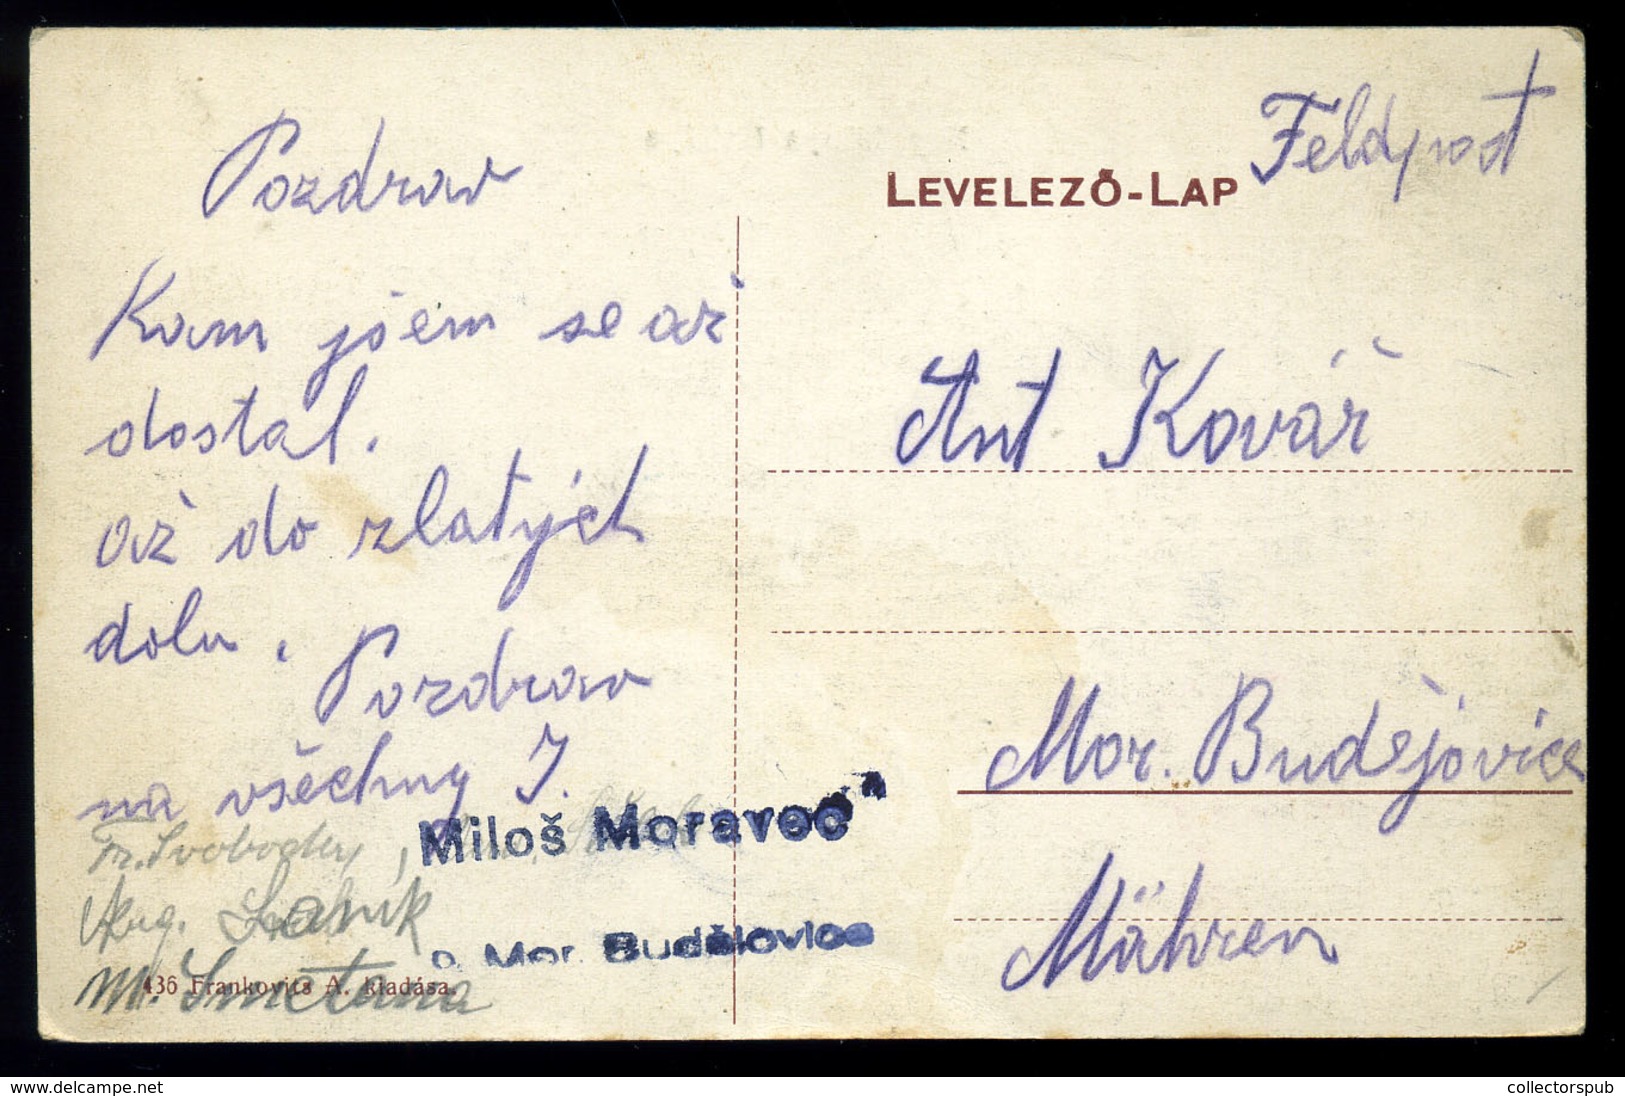 Pozdrav
Kam jsem se až
dostal.
až do zlatých
dolu.
Pozdrav
na všechny J.
Fr. Svoboda,
Aug.
M. Smetana
Miloš Moravec
Mor. Budějovice
436 Frankovits A. kiadása.
Feldpost
LEVELEZŐ-LAP
Ant Kovář
Mor. Budějovice
Mähren
www.delcampe.net
collectorspub